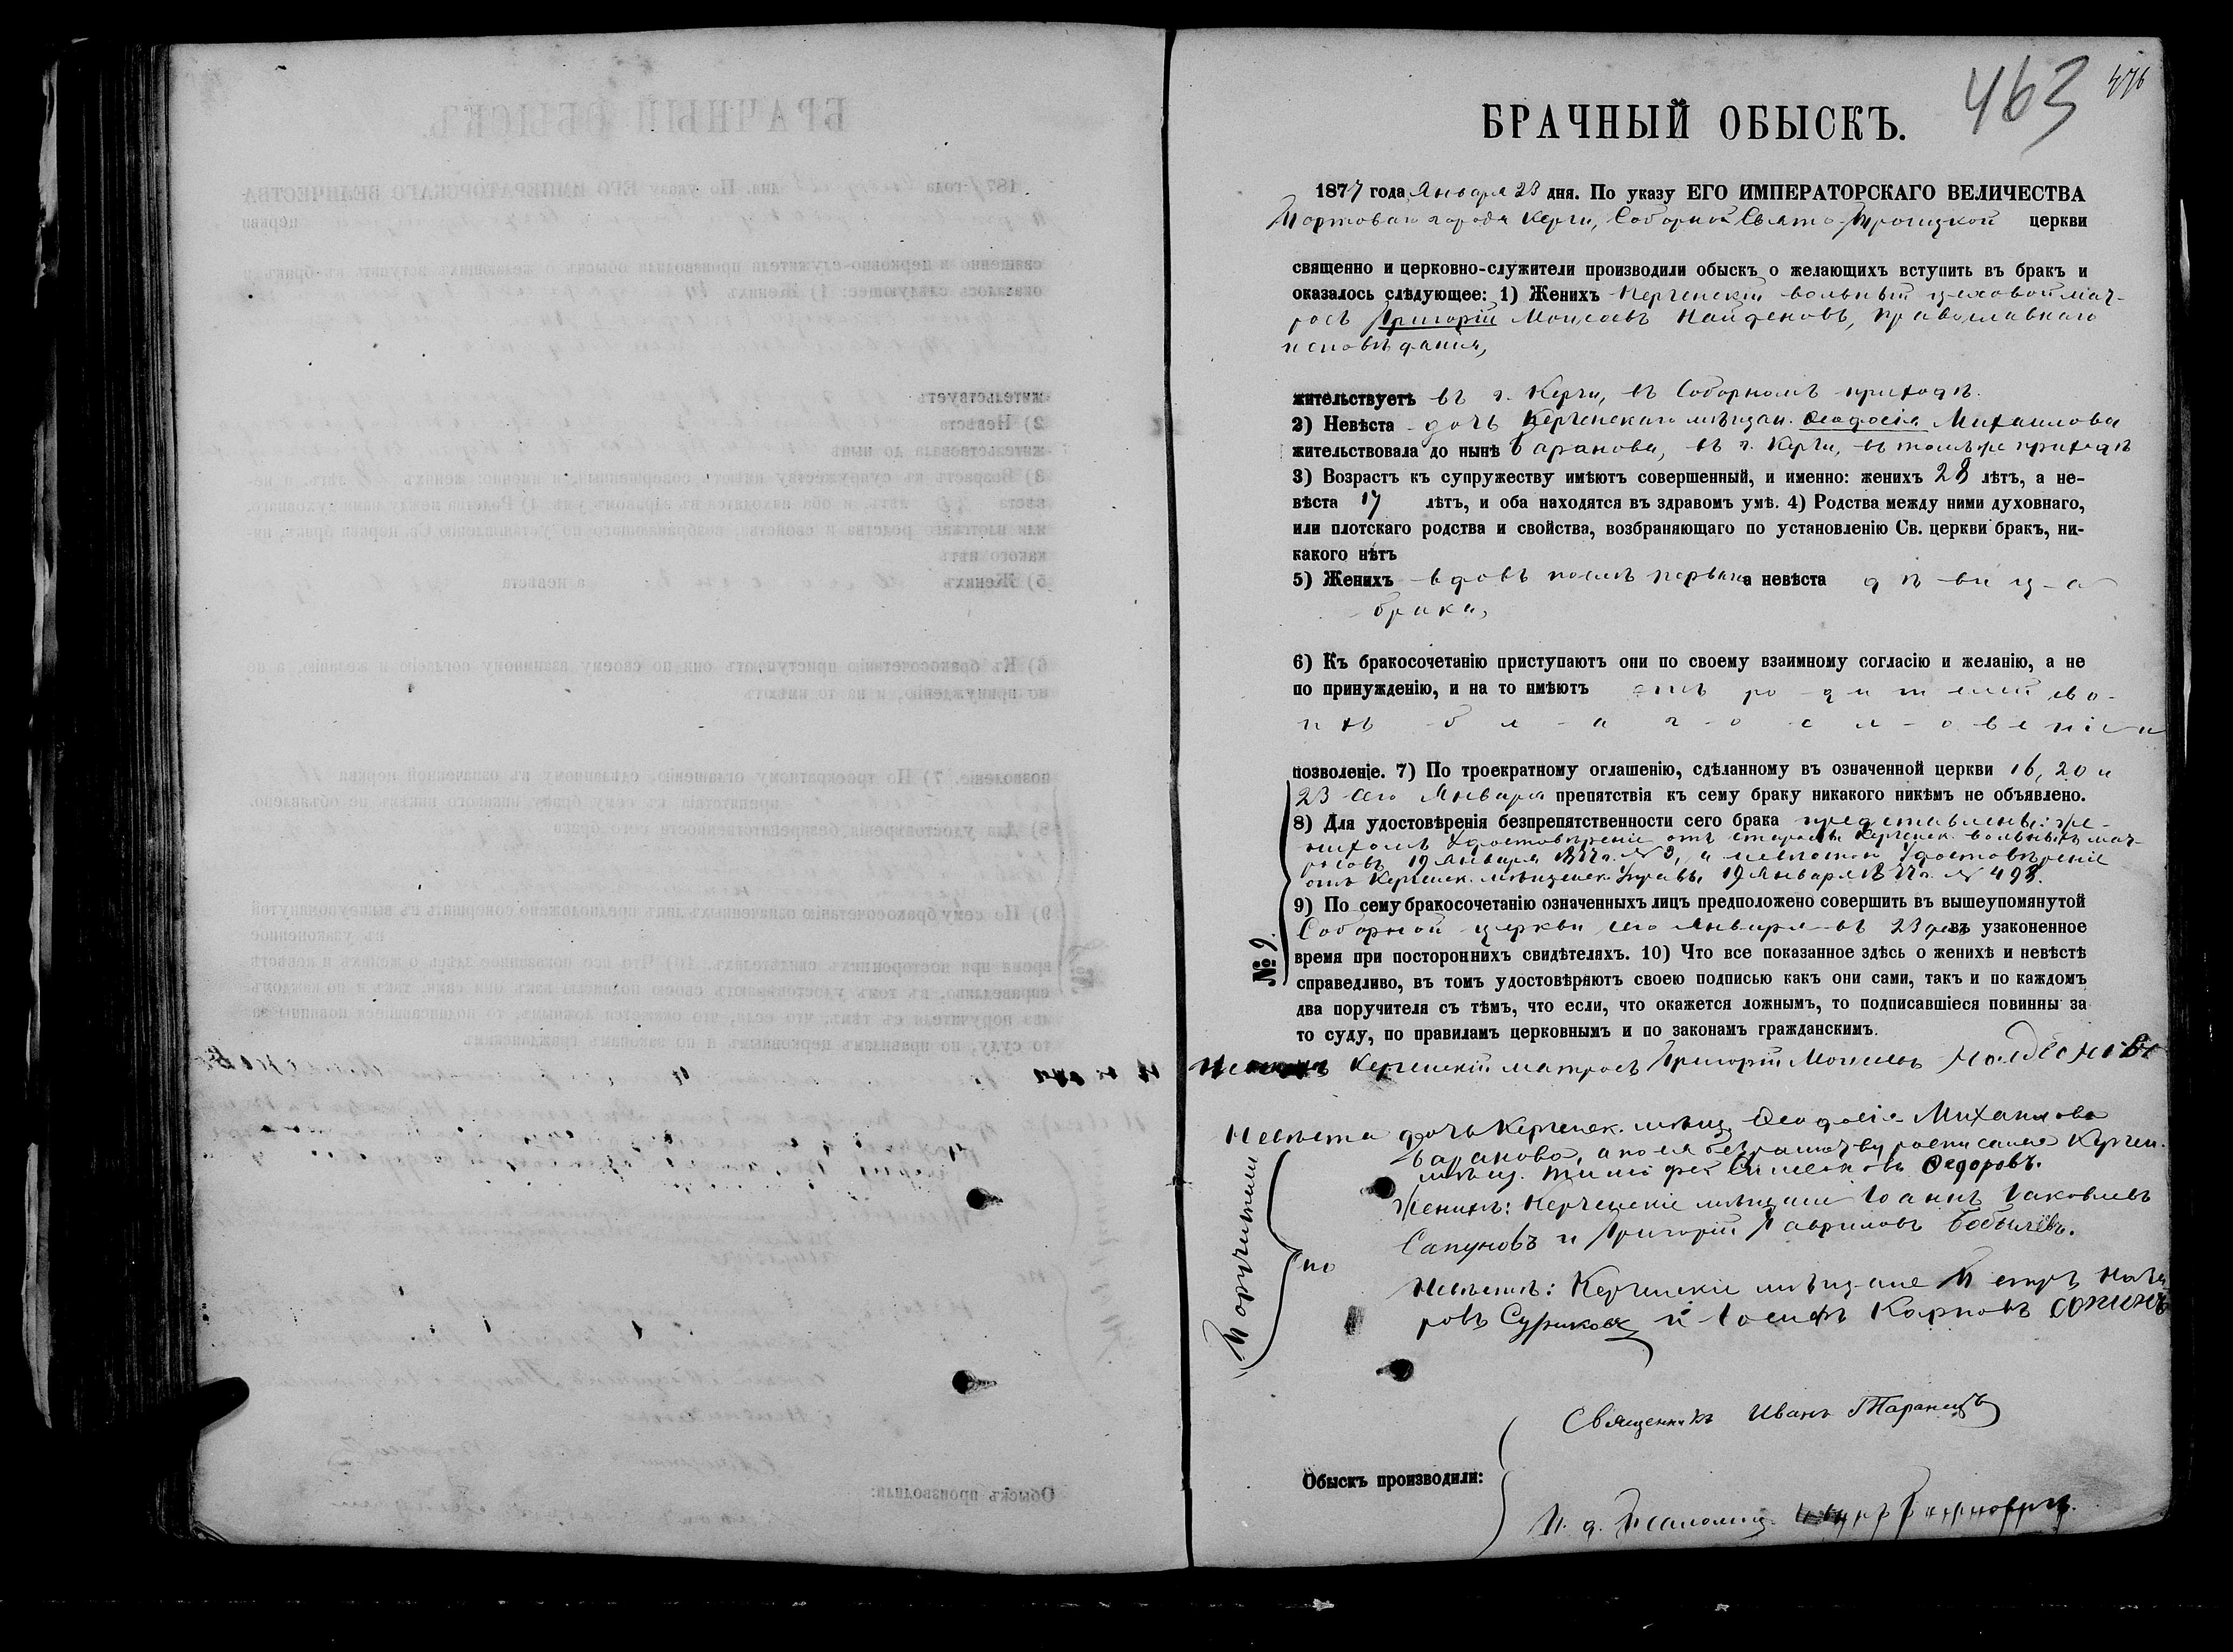 463
476
БРАЧНЫЙ ОБЫСКЪ.
1877 года Января 23 дня. По указу ЕГО ИМПЕРАТОРСКАГО ВЕЛИЧЕСТВА
Портоваго города Керчи, Соборной Свято-Троицкой церкви
священно и церковно-служители производили обыскъ о желающихъ вступить въ бракъ и
оказалось слѣдующее: 1) Женихъ Керченскій вольный цеховой мат-
росъ Григорій Моисеевъ Найденовъ, православнаго
исповѣданія,
жительствуетъ въ г. Керчи, въ Соборномъ приходѣ.
2) Невѣста дочь Керченскаго мѣщан. Ѳеодосія Михаилова
жительствовала до нынѣ Баранова, въ г. Керчи, въ томъ же приходѣ
3) Возрастъ къ супружеству имѣютъ совершенный, и именно: женихъ 28 лѣтъ, а не-
вѣста 17 лѣтъ, и оба находятся въ здравомъ умѣ. 4) Родства между ними духовнаго,
или плотскаго родства и свойства, возбраняющаго по установленію Св. церкви бракъ, ни-
какого нѣтъ
5) Женихъ вдовъ послѣ перваго а невѣста дѣвица
брака,
6) Къ бракосочетанію приступаютъ они по своему взаимному согласію и желанію, а не
по принужденію, и на то имѣютъ отъ родителей сво-
ихъ благословеніе и
позволеніе. 7) По троекратному оглашенію, сдѣланному въ означенной церкви 16, 20 и
23 сего Января препятствія къ сему браку никакого никѣмъ не объявлено.
8) Для удостовѣренія безпрепятственности сего брака представлены: же-
нихомъ Удостовѣреніе отъ старосты Керченск. вольныхъ мат-
росовъ 19 Января 1877 г. № 3, а невѣстою Удостовѣреніе
отъ Керченск. мѣщанск. Управы 19 Января 1877 г. № 498.
9) По сему бракосочетанію означенныхъ лицъ предположено совершить въ вышеупомянутой
Соборной церкви сего Января въ 23 день въ узаконенное
№ 9.
время при постороннихъ свидѣтеляхъ. 10) Что все показанное здѣсь о женихѣ и невѣстѣ
справедливо, въ томъ удостовѣряютъ своею подписью какъ они сами, такъ и по каждомъ
два поручителя съ тѣмъ, что если, что окажется ложнымъ, то подписавшіеся повинны за
то суду, по правиламъ церковнымъ и по законамъ гражданскимъ.
Женихъ Керченскій матросъ Григорій Моисеевъ Найдёновъ
Невѣста дочь Керченск. мѣщ. Ѳеодосія Михаилова
Баранова, а по ея безграмотству росписался Керчен.
мѣщ. Тимоѳей Симеоновъ Ѳедоровъ.
Поручители
по
Женихѣ: Керченскіе мѣщане Іоаннъ Іаковлевъ
Сапуновъ и Григорій Гавриловъ Бобылёвъ.
Невѣстѣ: Керченскіе мѣщане Петръ
ровъ Суриковъ и Іосифъ Карповъ
Священникъ Иванъ Таранецъ
Обыскъ производили:
И. д. Псаломщ.